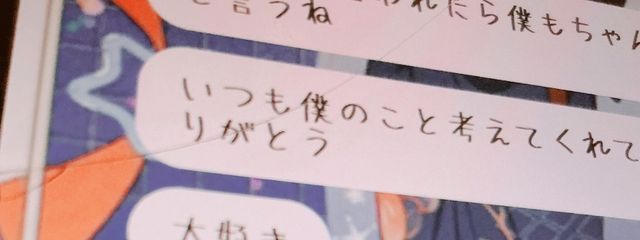 と言うね
れたら僕もちゃん
いつも僕のこと考えてくれて
りがとう
大好き